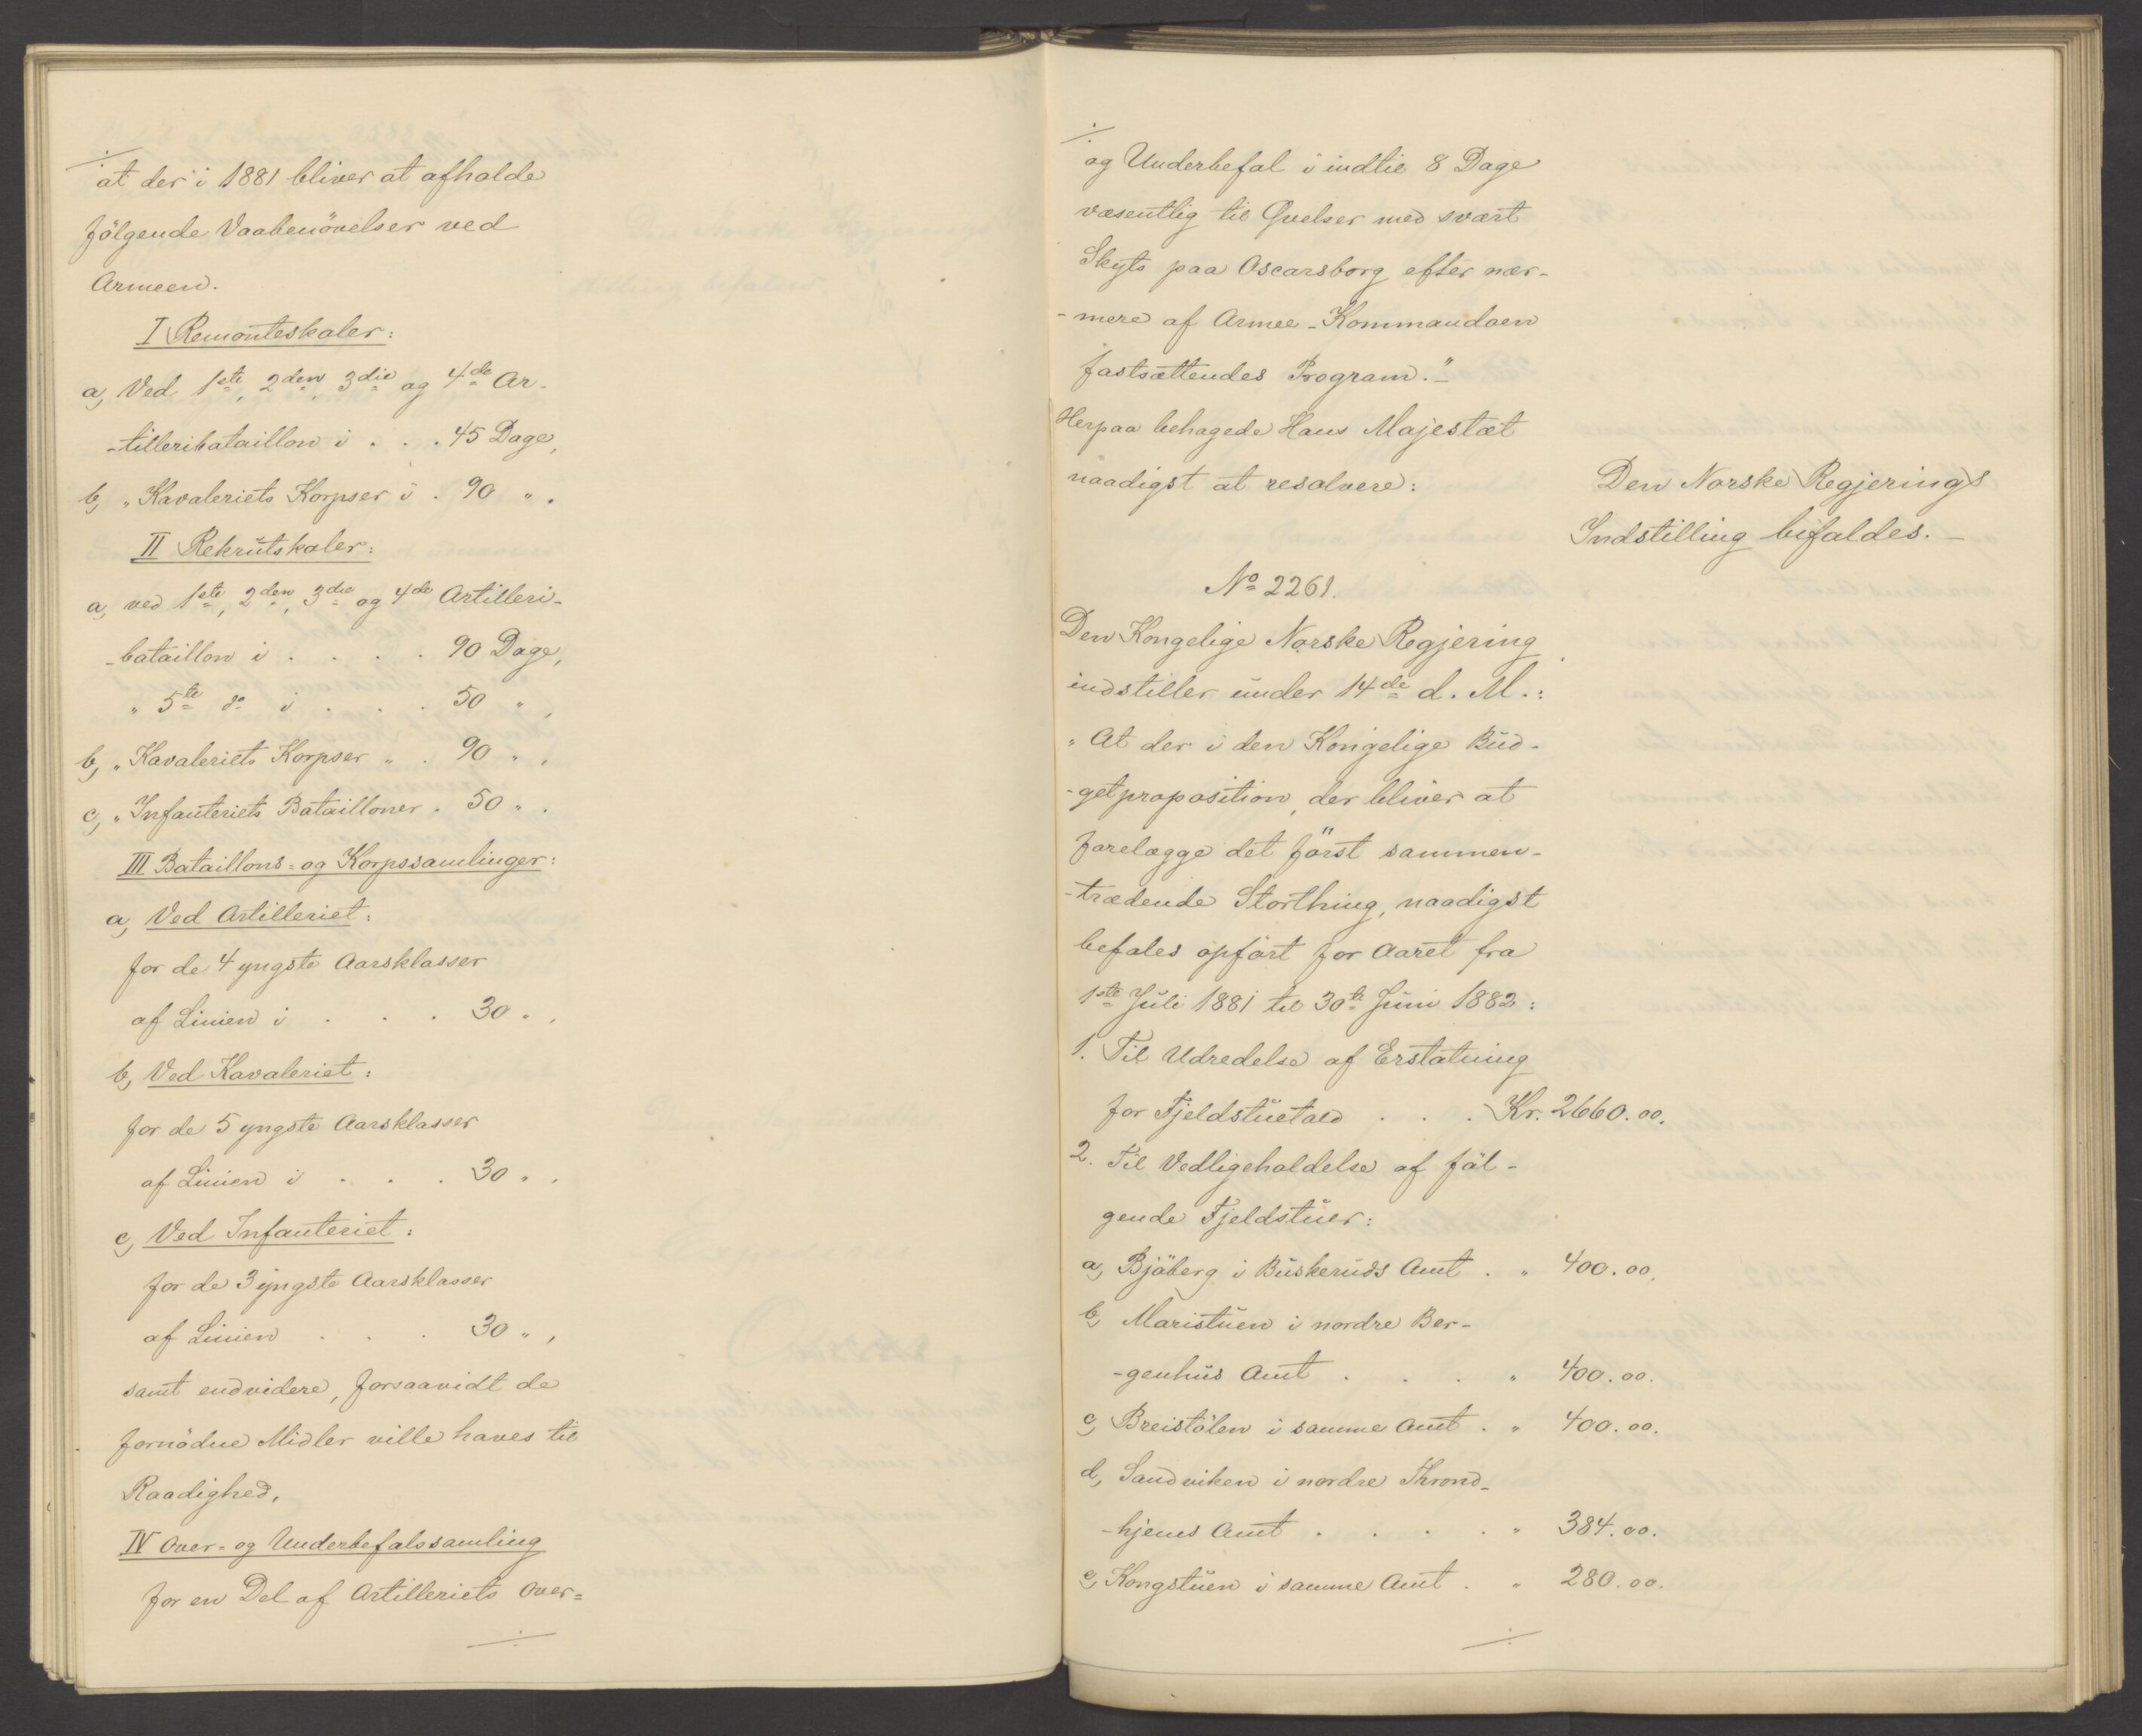 ./.
at der i 1881 bliver at afholde
følgende Vaabenövelser ved
Armeen.
I Remonteskoler:
a, Ved 1ste, 2den, 3die og 4de Ar-
-tilleribataillon i . . . 45 Dage,
b, „ Kavaleriets Korpser i . 90 „ .
II Rekrutskoler:
a, ved 1ste, 2den, 3die og 4de Artilleri-
-bataillon i . . . . 90 Dage,
„ 5te do i . . . 50 „ ,
b, „ Kavaleriets Korpser „ . 90 „ ,
c, „ Infanteriets Batailloner . 50 „ .
III Bataillons- og Korpssamlinger:
a, Ved Artilleriet:
for de 4 yngste Aarsklasser
af Linien i . . . 30 „ ,
b, Ved Kavaleriet:
for de 5 yngste Aarsklasser
af Linien i . . . 30 „ ,
c, Ved Infanteriet:
for de 3 yngste Aarsklasser
af Linien . . . 30 „ ,
samt endvidere, forsaavidt de
fornödne Midler ville haves til
Raadighed,
IV Over- og Underbefalssamling
for en Del af Artilleriets Over-
./.
./.
og Underbefal i indtil 8 Dage
væsentlig til Øvelser med svært
Skyts paa Oscarsborg efter nær-
-mere af Armee-Kommandoen
fastsættendes Program."-
Herpaa behagede Hans Majestæt
naadigst at resolvere:
Den Norske Regjerings
Indstilling bifaldes.-
No 2261.
Den Kongelige Norske Regjering
indstiller under 14de d. M.:
„At der i den Kongelige Bud-
-getproposition, der bliver at
forelægge det först sammen-
-trædende Storthing, naadigst
befales opført for Aaret fra
1ste Juli 1881 til 30te Juni 1882:
1. Til Udredelse af Erstatning
for Fjeldstuetold . . . Kr. 2660.00.
2. Til Vedligeholdelse af føl-
gende Fjeldstuer:
a, Bjöberg i Buskeruds Amt . „ 400.00.
b, Maristuen i nordre Ber-
-genhus Amt . . . „ 400.00.
c, Breistölen i samme Amt . „ 400.00.
d, Sandviken i nordre Thrond-
-hjems Amt . . . . „ 384.00.
e, Kongstuen i samme Amt . „ 280.00.
./.